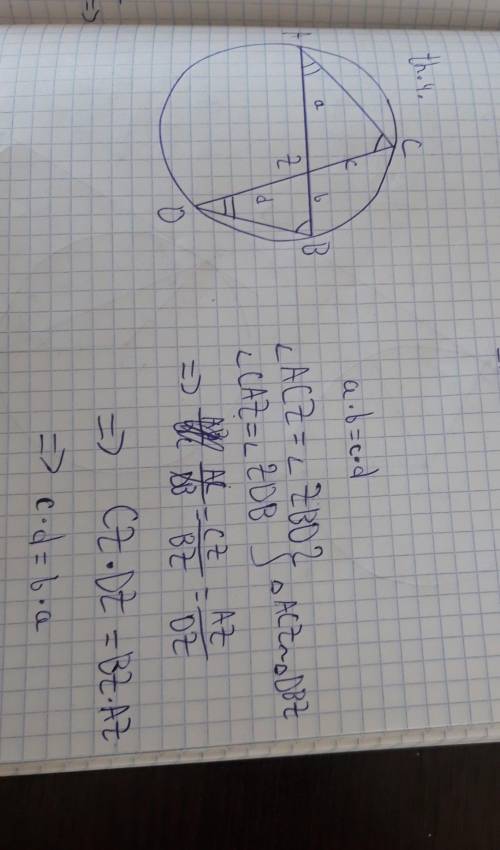 th.4.
A
a
C
c
Z
b
d
D
B
a·b=c·d
∠ACZ=∠ZBD
∠CAZ=∠ZDB } △ACZ~△DBZ
=> AC/DB = CZ/BZ = AZ/DZ
=> CZ·DZ=BZ·AZ
=> c·d=b·a
=>